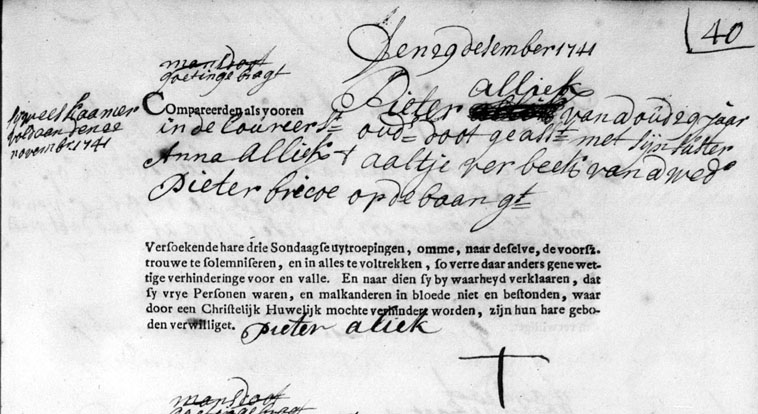 40
Den 29 desember 1741
mans doot
goet ingebragt
weeskaamer
voldaan den 22
november 1741
Compareerden als vooren Pieter Alliek van A oud 29 jaar
in de Loureer St oud doot geast met sijn suster
Anna Alliek & aaltje ver beek van A wed
Pieter fricoe op de baan gt
Versoekende hare drie Sondaagse uytroepingen, omme, naar deselve, de voorsz.
trouwe te solemniseren, en in alles te voltrekken, so verre daar anders gene wet-
tige verhinderinge voor en valle. En naar dien sy by waarheyd verklaaren, dat
sy vrye Personen waren, en malkanderen in bloede niet en bestonden, waar
door een Christelijk Huwelijk mochte verhindert worden, zijn hun hare gebo-
den verwilliget. Pieter aliek
mans doot
goet ingebragt